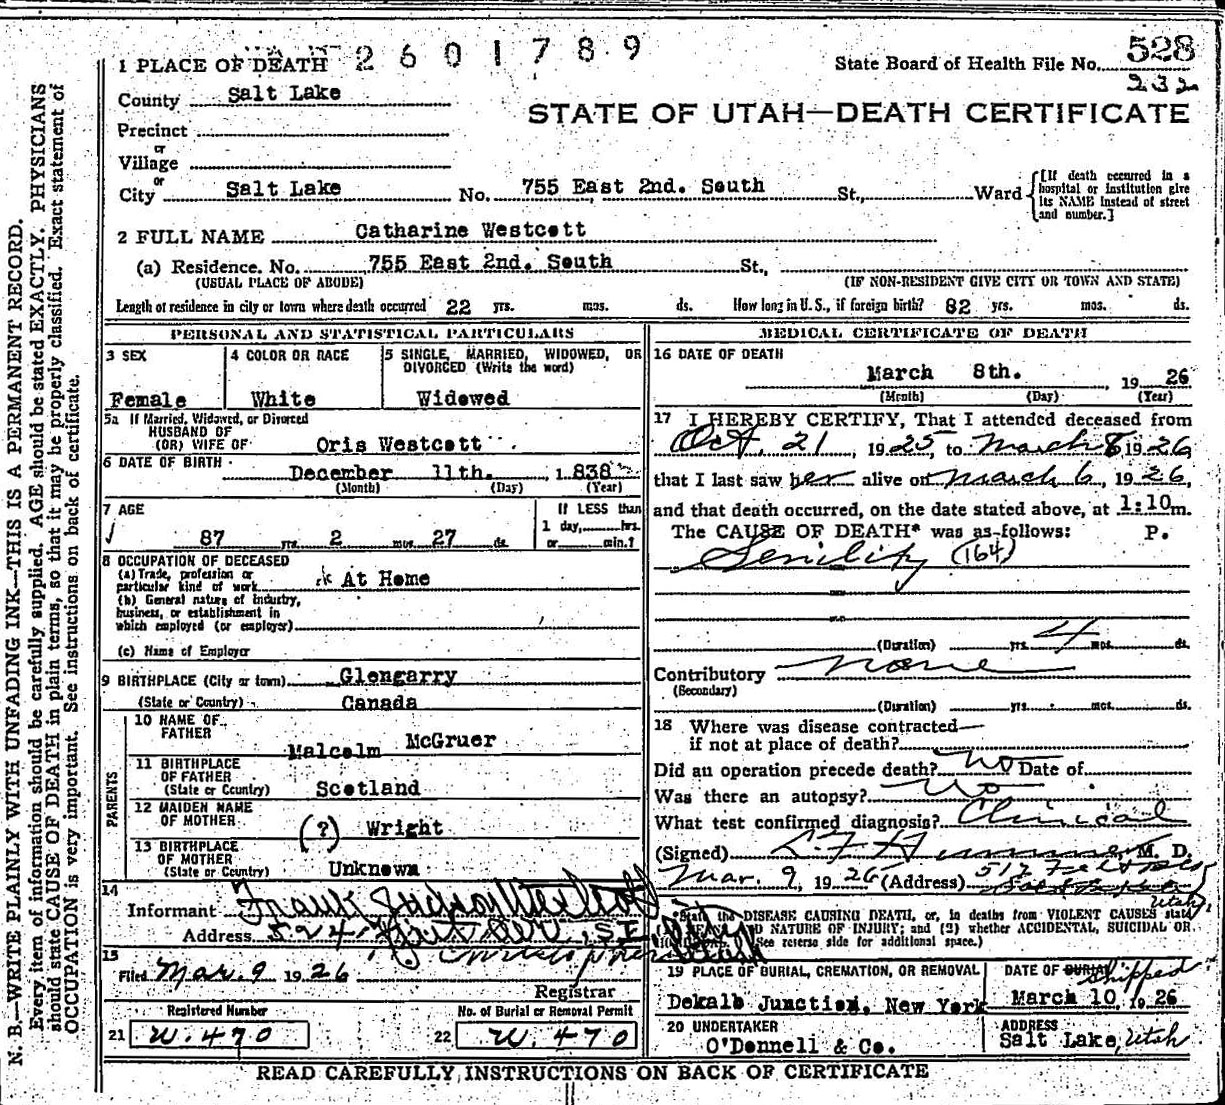 2 6 0 1 7 8 9
528
1 PLACE OF DEATH
State Board of Health File No.
232
County Salt Lake
STATE OF UTAH—DEATH CERTIFICATE
Precinct
or
Village
or
City Salt Lake No. 755 East 2nd. South St., Ward
[If death occurred in a hospital or institution give its NAME instead of street and number.]
2 FULL NAME Catharine Westcott
(a) Residence. No. 755 East 2nd. South St.,
(USUAL PLACE OF ABODE) (IF NON-RESIDENT GIVE CITY OR TOWN AND STATE)
Length of residence in city or town where death occurred 22 yrs. mos. ds. How long in U.S., if foreign birth? 82 yrs. mos. ds.
PERSONAL AND STATISTICAL PARTICULARS
3 SEX
Female
4 COLOR OR RACE
White
5 SINGLE, MARRIED, WIDOWED, OR
DIVORCED (Write the word)
Widowed
5a If Married, Widowed, or Divorced
HUSBAND OF
(OR) WIFE OF Oris Westcott
6 DATE OF BIRTH
December 11th. 1838
(Month) (Day) (Year)
7 AGE
87 yrs. 2 mos. 27 ds.
If LESS than
1 day, hrs.
or min.?
8 OCCUPATION OF DECEASED
(a) Trade, profession or
particular kind of work At Home
(b) General nature of industry,
business, or establishment in
which employed (or employer)
(c) Name of Employer
9 BIRTHPLACE (City or town) Glengarry
(State or Country) Canada
PARENTS
10 NAME OF
FATHER Malcolm McGruer
11 BIRTHPLACE
OF FATHER
(State or Country) Scotland
12 MAIDEN NAME
OF MOTHER (?) Wright
13 BIRTHPLACE
OF MOTHER
(State or Country) Unknown
14
Informant Frank Westcott
Address 524
15
Filed Mar. 9 1926
Registrar
Registered Number
21 W. 470
No. of Burial or Removal Permit
22 W. 470
MEDICAL CERTIFICATE OF DEATH
16 DATE OF DEATH
March 8th. , 1926
(Month) (Day) (Year)
17 I HEREBY CERTIFY, That I attended deceased from
Oct. 21 , 1925, to March 8 1926
that I last saw her alive on March 6, 1926,
and that death occurred, on the date stated above, at 1:10 m.
The CAUSE OF DEATH* was as follows: P.
Senility (164)
(Duration) yrs. 4 mos. ds.
Contributory none
(Secondary)
(Duration) yrs. mos. ds.
18 Where was disease contracted
if not at place of death?
Did an operation precede death? No Date of
Was there an autopsy? No
What test confirmed diagnosis? Clinical
(Signed) M. D.
Mar. 9, 1926 (Address) 517
Utah
*State the DISEASE CAUSING DEATH, or, in deaths from VIOLENT CAUSES state
AND NATURE OF INJURY; and (2) whether ACCIDENTAL, SUICIDAL OR
See reverse side for additional space.)
19 PLACE OF BURIAL, CREMATION, OR REMOVAL
Dekalb Junction, New York
DATE OF BURIAL shipped
March 10, 1926
20 UNDERTAKER
O'Donnell & Co.
ADDRESS
Salt Lake, Utah
READ CAREFULLY INSTRUCTIONS ON BACK OF CERTIFICATE
N. B.—WRITE PLAINLY WITH UNFADING INK—THIS IS A PERMANENT RECORD.
Every item of information should be carefully supplied. AGE should be stated EXACTLY. PHYSICIANS
should state CAUSE OF DEATH in plain terms, so that it may be properly classified. Exact statement of
OCCUPATION is very important. See instructions on back of certificate.